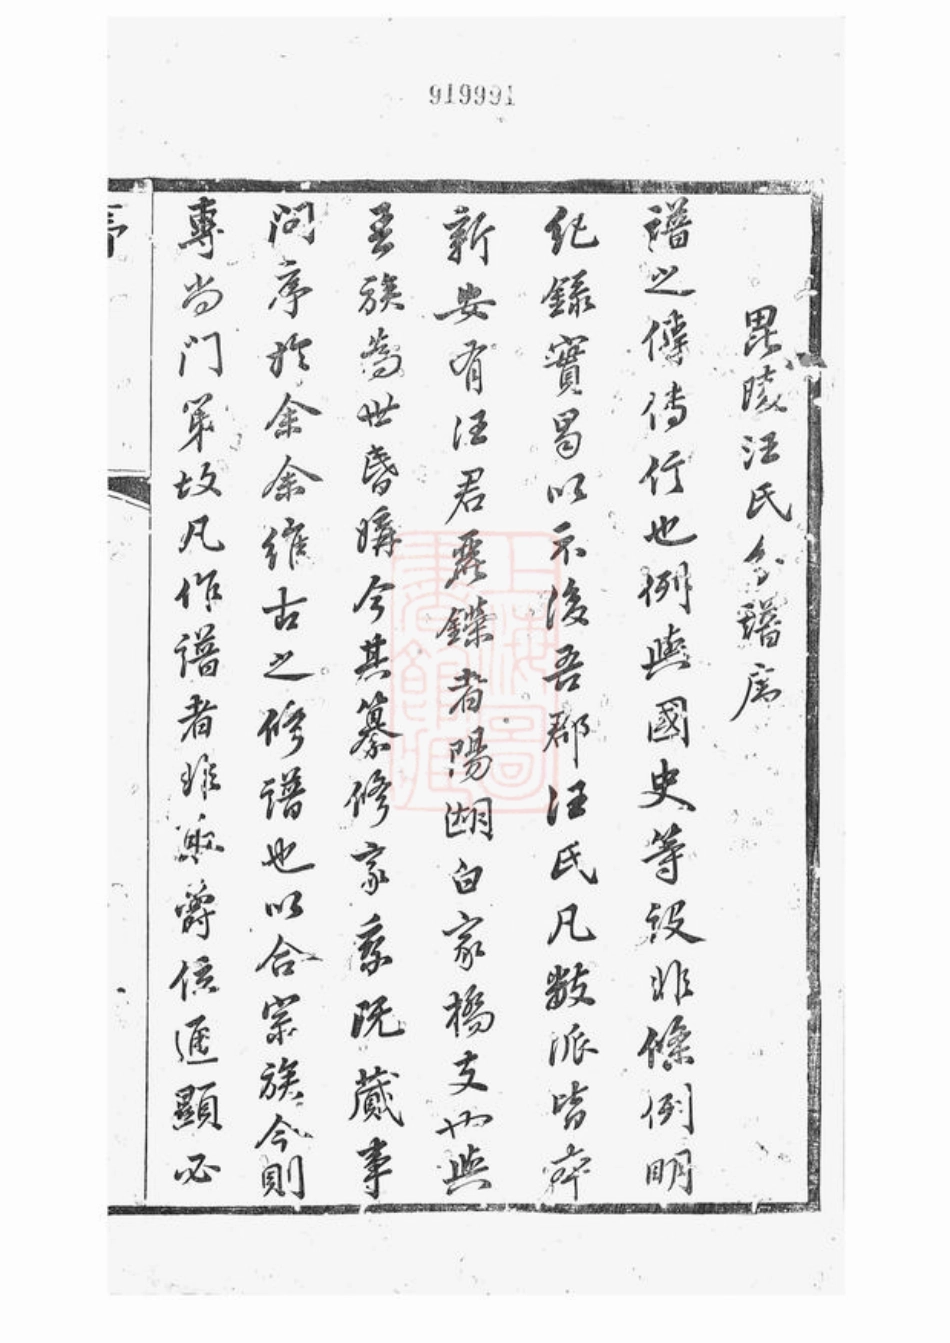 919991
毘陵汪氏合譜序
譜之傳傳行也例與國史等設非條例明
紀錄實曷以示後吾郡汪氏凡數派皆宗
新安有汪君鑅者陽湖白家橋支也與
吾族為世昏媾今其纂修家乘既蕆事
問序於余余維古之修譜也以合宗族今則
專尚門第故凡作譜者非取爵位通顯必
序
上海圖書館藏